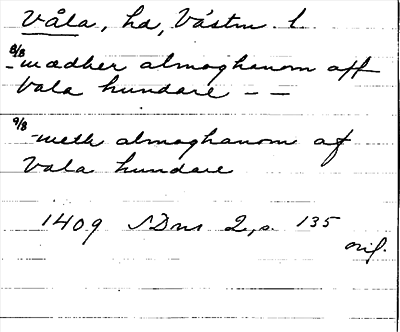 Våla, hd, Västm l.
8/8 - mædher almoghanom aff
Vala hundare — —
9/8 - meth almoghanom af
Vala hundare
1409 SDns 2, s. 135
orig.